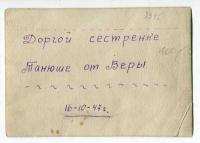 Доргой сестренке
Танюше от Веры
16-10-47г.